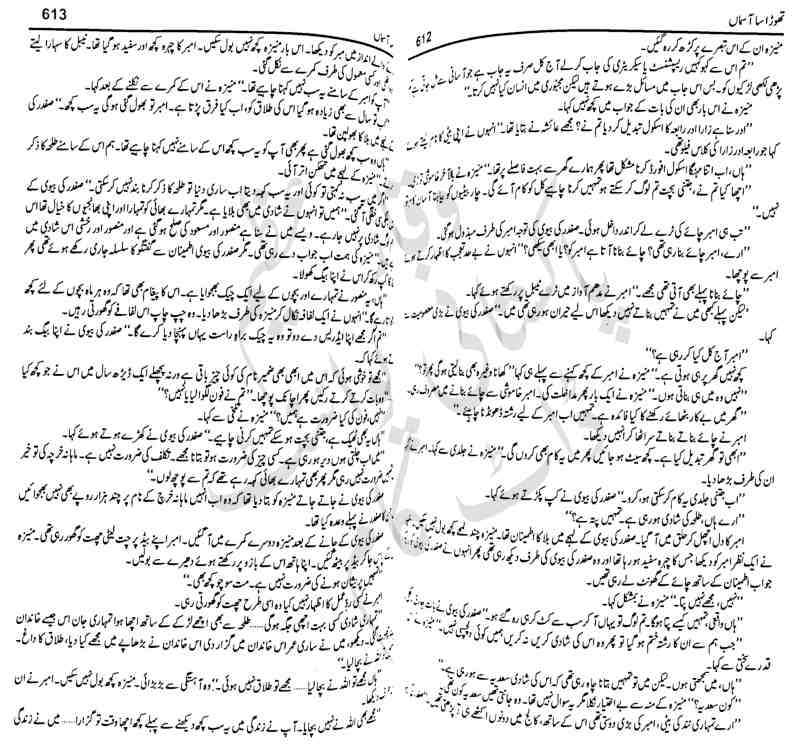 تھوڑا سا آسماں
612
منیزہ ان کے اس تبصرے پر کڑھ کر رہ گئیں۔
"تم اس سے کہو کہیں ریسپشنسٹ یا سیکریٹری کی جاب کر لے آج کل صرف یہ جاب ہے جو آسانی سے مل جاتی ہے
پڑھی لکھی لڑکیوں کو۔ بس اس جاب میں مسائل بڑے ہوتے ہیں لیکن مجبوری میں انسان کیا نہیں کرتا۔"
منیزہ نے اس بار بھی ان کی بات کے جواب میں کچھ نہیں کہا۔
"اور سنا ہے زارا اور رابعہ کا اسکول تبدیل کر دیا تم نے؟ مجھے عائشہ نے بتایا تھا۔" انہوں نے اپنی بیٹی کا نام لیتے ہوئے
کہا جو رابعہ اور زارا کی کلاس فیلو تھی۔
"ہاں، اب اتنا مہنگا اسکول افورڈ کرنا مشکل تھا پھر ہمارے گھر سے بہت فاصلے پر تھا۔" منیزہ نے بالآخر خاموشی توڑی
"اچھا کیا تم نے، جتنی بچت تم لوگ کر سکتے ہو تمہیں کرنا چاہیے کل کو کام آئے گی۔ چار بیٹیوں کو بیاہنا آسان
نہیں۔"
تب ہی امبر چائے کی ٹرے لے کر اندر داخل ہوئی۔ صفدر کی بیوی کی توجہ امبر کی طرف مبذول ہو گئی۔
"ارے، امبر چائے بنا رہی تھی؟ چائے بنانا آتا ہے امبر کو؟ یا ابھی سیکھی؟" انہوں نے بے حد تعجب کا اظہار کرتے ہوئے
امبر سے پوچھا۔
"چائے بنانا پہلے بھی آتی تھی مجھے۔" امبر نے مدھم آواز میں ٹرے ٹیبل پر رکھتے ہوئے کہا۔
"لیکن پہلے کبھی میں نے تمہیں بناتے نہیں دیکھا اس لیے حیران ہو رہی تھی میں۔" صفدر کی بیوی نے بڑی معصومیت سے
کہا۔
"امبر آج کل کیا کر رہی ہے؟"
"کچھ نہیں گھر پر ہی ہوتی ہے۔" منیزہ نے امبر کے کچھ کہنے سے پہلے ہی کہا۔ "کھانا وغیرہ بھی بنا لیتی ہو گی پھر تو؟"
"نہیں وہ میں ہی بناتی ہوں۔" منیزہ نے ایک بار پھر مداخلت کی۔ امبر خاموشی سے چائے بنانے میں مصروف رہی۔
"گھر میں بے کار بٹھائے رکھنے کا کیا فائدہ ہے۔ تمہیں اب امبر کے لیے رشتہ ڈھونڈنا چاہیے۔"
امبر نے چائے بناتے بناتے سر اٹھا کر انہیں دیکھا۔
"ابھی تو گھر تبدیل کیا ہے۔ کچھ سیٹ ہو جائیں پھر میں یہ کام بھی کروں گی۔" منیزہ نے جلدی سے کہا۔ امبر نے
ان کی طرف بڑھا دیا۔
"اب جتنی جلدی یہ کام کر سکتی ہو، کرو۔" صفدر کی بیوی نے کپ پکڑتے ہوئے کہا۔
"ارے ہاں، طلحہ کی شادی ہو رہی ہے۔ تمہیں پتہ ہے؟"
امبر کا دل اچھل کر حلق میں آ گیا۔ صفدر کی بیوی کے لہجے میں بلا کا اطمینان تھا۔ منیزہ چند لمحے کچھ بول نہیں سکیں۔ انہوں
نے ایک نظر امبر کو دیکھا جس کا چہرہ سفید ہو رہا تھا اور وہ صفدر کی بیوی کی طرف دیکھ رہی تھی پھر انہوں نے صفدر کی بیوی
جواب اطمینان کے ساتھ چائے کے گھونٹ لے رہی تھیں۔
"نہیں، مجھے نہیں پتا۔" منیزہ نے بمشکل کہا۔
"ہاں واقعی، تمہیں کیسے پتا ہو گا۔ تم لوگ تو یہاں آ کر سب سے کٹ کر ہی رہ گئے ہو۔" صفدر کی بیوی نے
"جب ہم سے ان کا رشتہ ختم ہو گیا تو پھر وہ اس کی شادی کریں نہ کریں ہمیں کوئی دلچسپی نہیں۔"
قدرے سختی سے کہا۔
"ہاں، میں سمجھتی ہوں۔ لیکن میں تو تمہیں بتانا چاہ رہی تھی کہ اس کی شادی سعدیہ سے ہو رہی ہے۔"
"کون سعدیہ؟" منیزہ کے منہ سے بے اختیار نکلا مگر یہ سوال نہیں تھا۔ وہ جانتی تھیں سعدیہ کون تھی۔
"ارے تمہاری نند کی بیٹی، امبر کی بڑی دوستی تھی اس کے ساتھ، کالج میں دونوں اکٹھے ہی آ پڑھتی تھیں۔"
613
آسماں
والے انداز میں امبر کو دیکھا۔ اس بار منیزہ کچھ نہیں بول سکیں۔ امبر کا چہرہ کچھ اور سفید ہو گیا تھا۔ ٹیبل کا سہارا لیتے
کسی معمول کی طرف کمرے سے نکل گئی۔
"آپ کو امبر کے سامنے یہ سب نہیں کہنا چاہیے تھا۔" منیزہ نے اس کے کمرے سے نکلنے کے بعد کہا۔
"سال سے بھی زیادہ ہو گیا اس کی طلاق کو، اب کیا فرق پڑتا ہے۔ امبر تو بھول گئی ہو گی یہ سب کچھ۔" صفدر کی
میں بلا کا بھولپن تھا۔
"وہ سب کچھ بھول گئی ہے پھر بھی آپ کو یہ سب کچھ اس کے سامنے نہیں کہنا چاہیے تھا۔ ہم اس کے سامنے طلحہ کا ذکر
منیزہ کے لہجے میں تھکن اتر آئی۔
"میں یہ سب نہ کہتی تو کوئی اور یہ سب کچھ کہہ دیتا اب ساری دنیا تو طلحہ کا ذکر کرنا بند نہیں کر سکتی۔" صفدر کی بیوی کے
نکلی آ گئی۔ "ہمیں تو انہوں نے شادی میں بھی بلایا ہے۔ مگر تمہارے بھائی کو تمہارا اور اپنی بھانجیوں کا خیال تھا اس
شادی پر نہیں جا رہے۔ ویسے میں نے سنا ہے منصور اور مسعود کی صلح ہو گئی ہے اور منصور اور رخشی اس شادی میں
منیزہ کی ہمت اب جواب دے رہی تھی۔ مگر صفدر کی بیوی اطمینان سے گفتگو کا سلسلہ جاری رکھے ہوئے تھی پھر
رکھ کر اس نے اپنا بیگ کھولا۔
"یہ منصور نے تمہارے اور بچوں کے لیے ایک چیک بھجوایا ہے۔ اس کا پیغام بھی تھا کہ وہ ہر ماہ بچوں کے لئے کچھ
انہوں نے ایک لفافہ نکال کر منیزہ کی طرف بڑھا دیا۔ وہ چپ چاپ اس لفافے کو گھورتی رہیں۔
"تم اگر مجھے اپنا ایڈریس دے دو تو وہ یہ چیک براہ راست یہاں پہنچا دیا کرے گا۔" صفدر کی بیوی نے اپنا بیگ بند
ہوئے کہا۔
"مجھے تو خوشی ہوئی کہ اس میں ابھی بھی ضمیر نام کی کوئی چیز باقی ہے ورنہ پچھلے ایک ڈیڑھ سال میں اس نے جو کچھ کیا
وہ بات کرتے کرتے رکیں پھر اچانک پوچھا۔ "تم نے فون لگوا لیا یا نہیں؟"
"نہیں، فون کی کیا ضرورت ہے ہمیں۔" منیزہ نے تلخی سے کہا۔
"ہاں یہ بھی ٹھیک ہے، جتنی بچت ہو سکے تمہیں کرنی چاہیے۔" صفدر کی بیوی نے کھڑے ہوتے ہوئے کہا۔
"میں اب چلتی ہوں دیر ہو رہی ہے۔ کسی چیز کی ضرورت ہو تو بتانا مجھے۔ تکلف کی ضرورت نہیں ہے۔ ماہانہ خرچہ کی تو خیر
ضرورت نہیں رہی مگر پھر بھی تمہارے بھائی کہہ رہے تھے کہ تم سے پوچھ لوں۔"
صفدر کی بیوی نے جاتے جاتے منیزہ کو بتا دیا تھا کہ وہ اب انہیں ماہانہ خرچ کے نام پر چند ہزار روپے بھی نہیں بھجوائیں
کا صفدر نے پہلے وعدہ کیا تھا۔
صفدر کی بیوی کے جانے کے بعد منیزہ دوسرے کمرے میں آ گئیں۔ امبر اپنے بیڈ پر چت لیٹی چھت کو گھور رہی تھی۔ منیزہ
جا کر بیڈ پر بیٹھ گئیں۔ اپنا ہاتھ اس کے بازو پر رکھتے ہوئے دھیرے سے بولیں۔
"تمہیں پریشان ہونے کی ضرورت نہیں ہے۔ مت سوچو کچھ بھی۔"
امبر نے کسی ردعمل کا اظہار نہیں کیا وہ اسی طرح چھت کو گھورتی رہی۔
"تمہاری شادی کسی بہت اچھی جگہ ہو گی......طلحہ سے بھی اچھے لڑکے کے ساتھ اچھا ہوا تمہاری جان اس جیسے خاندان
دیکھو، میں نے ساری عمر اس خاندان میں گزار دی اس خاندان نے بڑھاپے میں مجھے کیا دیا، طلاق کا داغ۔
نے بچا لیا۔"
"مجھے تو اللہ نے بچا لیا......مجھے تو طلاق نہیں ہوئی۔" وہ آہستگی سے بڑبڑائی۔ منیزہ کچھ بول نہیں سکیں۔ امبر نے ان
دیکھا۔
"مجھے بھی اللہ نے نہیں بچایا۔ آپ نے زندگی میں یہ سب کچھ دیکھنے سے پہلے کچھ اچھا وقت تو گزارا......میں نے زندگی